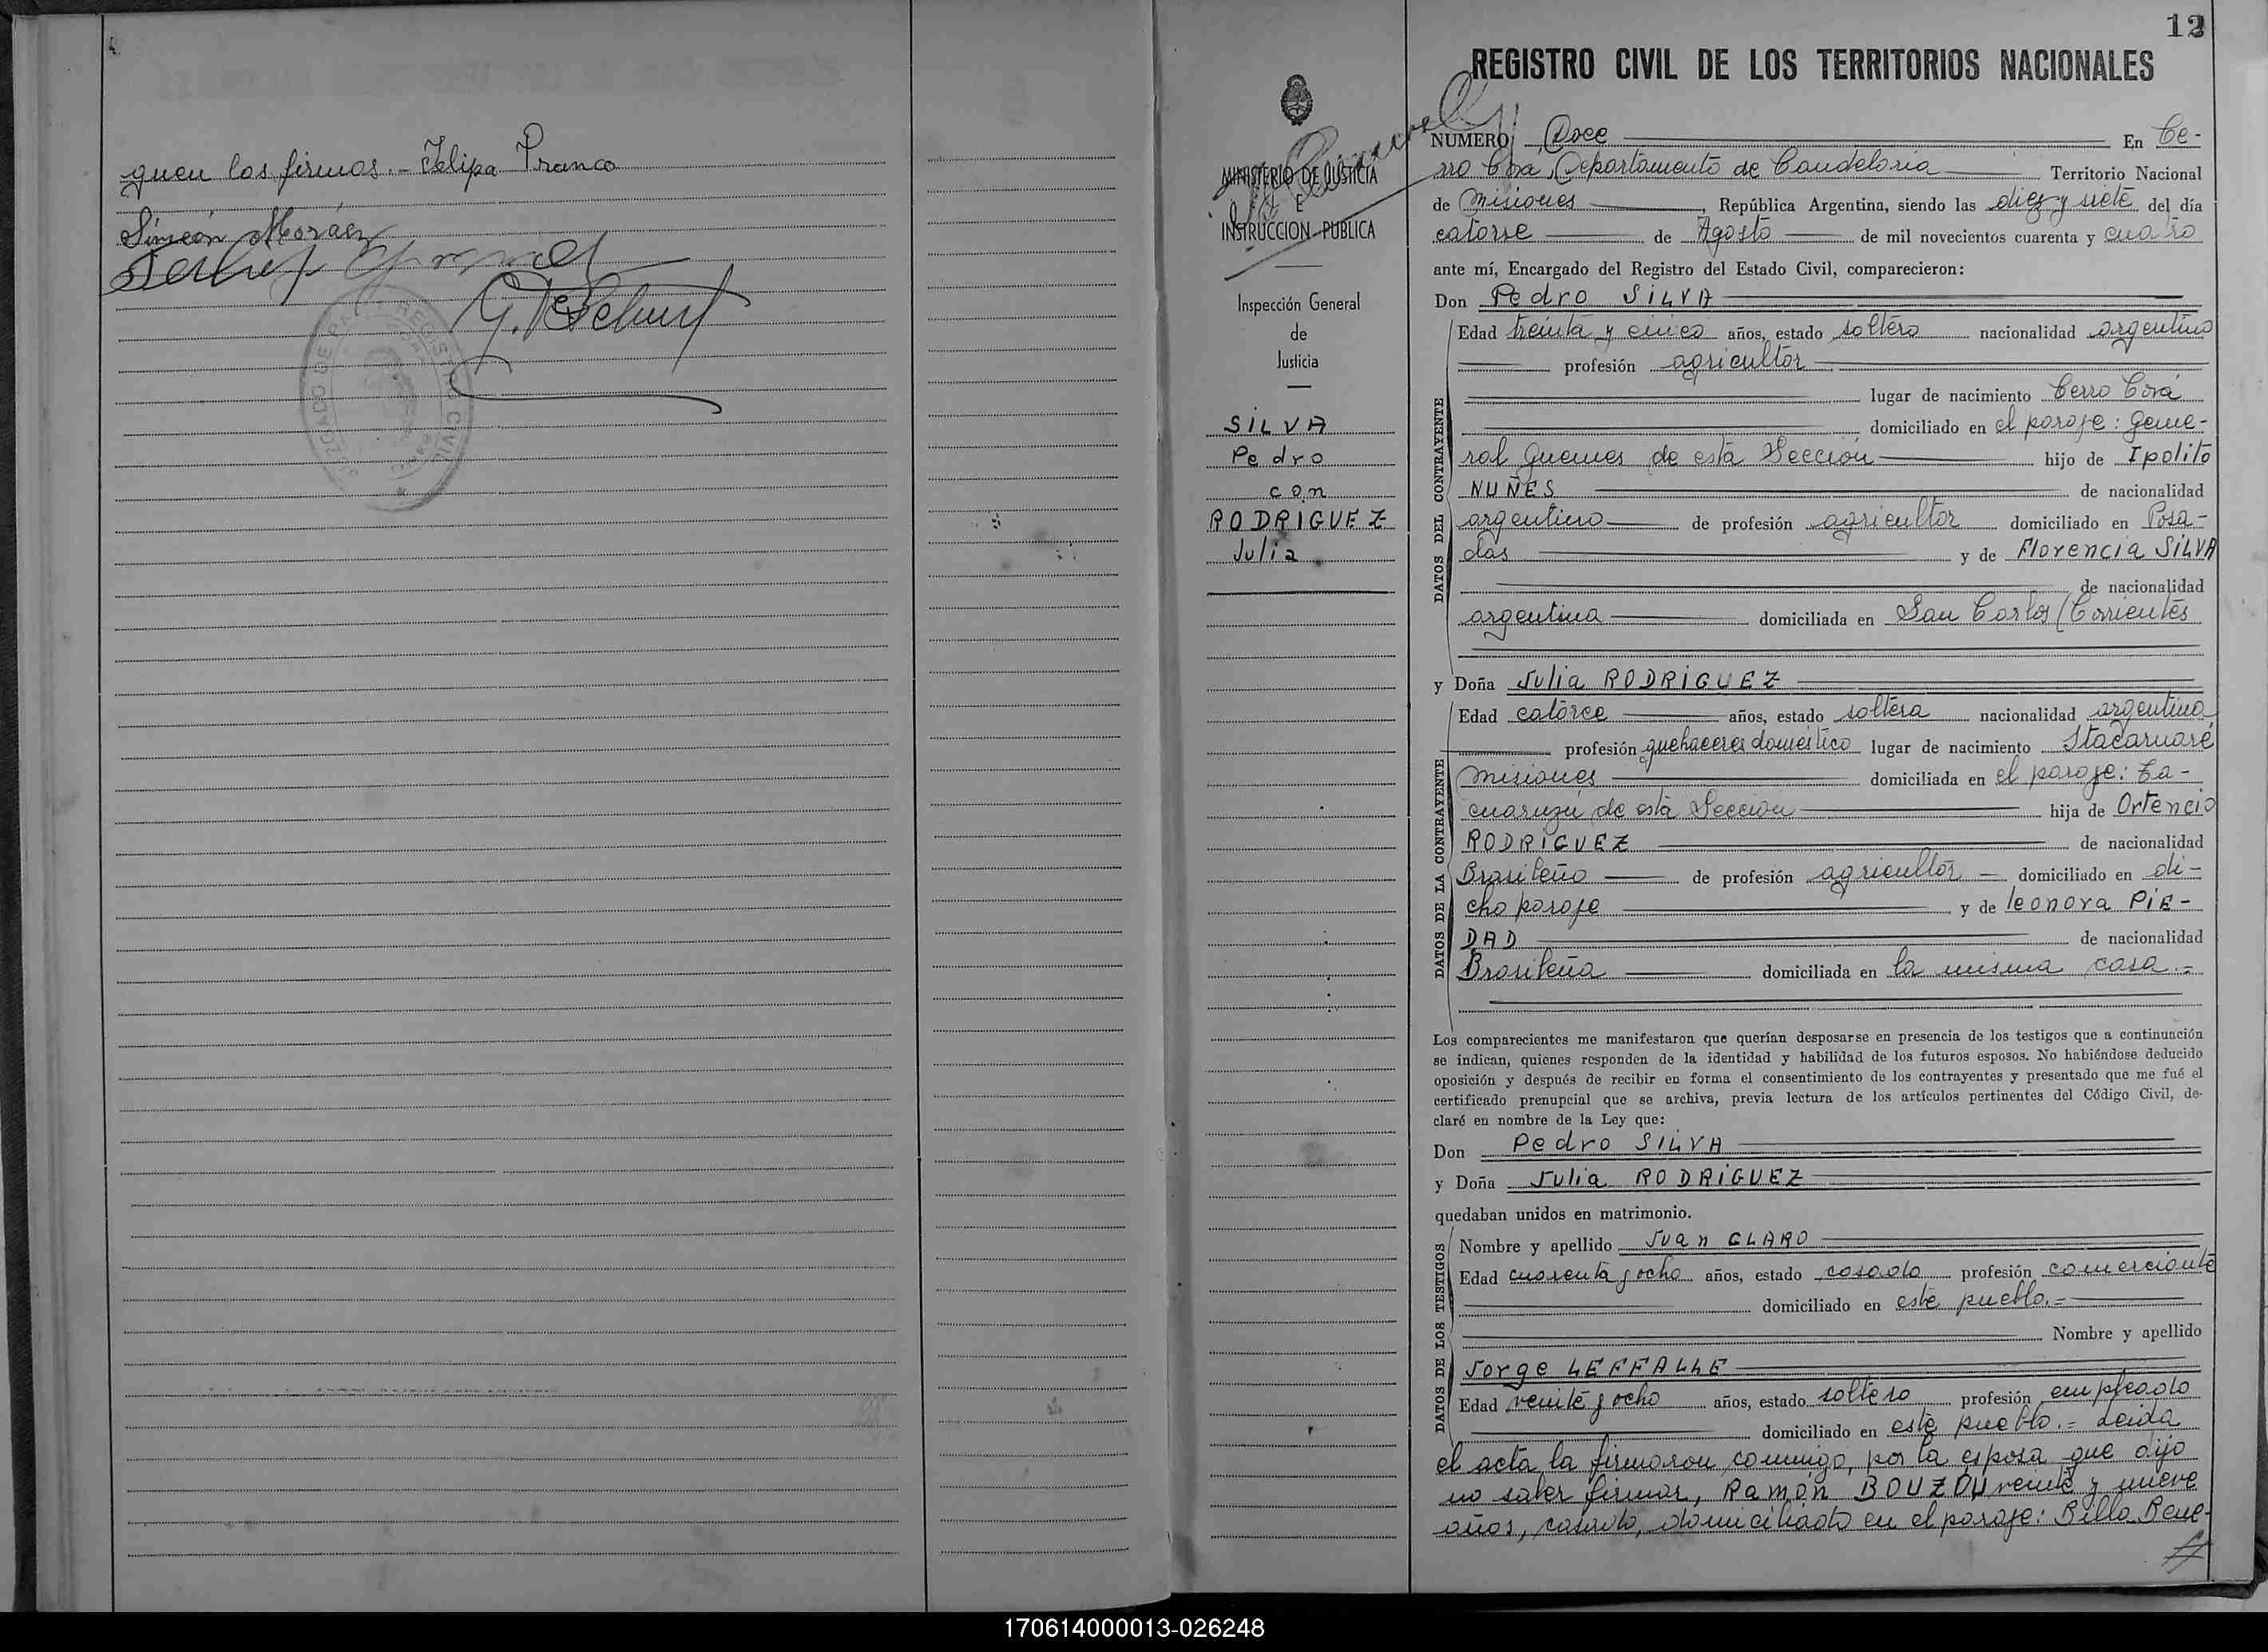 guen las firmas.- Felipa Franco
Simeón Moráez
REGISTRO CIVIL
JUZGADO DE PAZ
12
REGISTRO CIVIL DE LOS TERRITORIOS NACIONALES
MINISTERIO DE JUSTICIA
E
INSTRUCCION PUBLICA
Inspección General
de
Justicia
SILVA
Pedro
con
RODRIGUEZ
Julia
NUMERO Doce En Ce-
rro Corá, Departamento de Candelaria Territorio Nacional
de Misiones, República Argentina, siendo las diez y siete del día
catorse de Agosto de mil novecientos cuarenta y cuatro
ante mí, Encargado del Registro del Estado Civil, comparecieron:
Don Pedro SILVA
DATOS DEL CONTRAYENTE
Edad treinta y cinco años, estado soltero nacionalidad argentino
profesión agricultor
lugar de nacimiento Cerro Corá
domiciliado en el paraje: Gene-
ral Guemes de esta Sección hijo de Ipolito
NUÑES de nacionalidad
argentino de profesión agricultor domiciliado en Posa-
das y de Florencia SILVA
de nacionalidad
argentina domiciliada en San Carlos (Corrientes
y Doña Julia RODRIGUEZ
DATOS DE LA CONTRAYENTE
Edad catorce años, estado soltera nacionalidad argentina
profesión quehaceres doméstico lugar de nacimiento Itacaruaré
Misiones domiciliada en el paraje: Ta-
cuaruzú de esta Sección hija de Ortencio
RODRIGUEZ de nacionalidad
Brasileño de profesión agricultor domiciliado en di-
cho paraje y de leonora PIE-
DAD de nacionalidad
Brasileña domiciliada en la misma casa.=
Los comparecientes me manifestaron que querían desposarse en presencia de los testigos que a continuación
se indican, quienes responden de la identidad y habilidad de los futuros esposos. No habiéndose deducido
oposición y después de recibir en forma el consentimiento de los contrayentes y presentado que me fué el
certificado prenupcial que se archiva, previa lectura de los artículos pertinentes del Código Civil, de-
claré en nombre de la Ley que:
Don Pedro SILVA
y Doña Julia RODRIGUEZ
quedaban unidos en matrimonio.
DATOS DE LOS TESTIGOS
Nombre y apellido Juan CLARO
Edad cuarenta y ocho años, estado casado profesión comerciante
domiciliado en este pueblo.=
Nombre y apellido
Jorge LEFFALLE
Edad veinte y ocho años, estado soltero profesión empleado
domiciliado en este pueblo.= Leida
el acta la firmaron conmigo, por la esposa que dijo
no saber firmar, Ramón BOUZÓN veinte y nueve
años, casado, domiciliado en el paraje: Billa Bene-
170614000013-026248